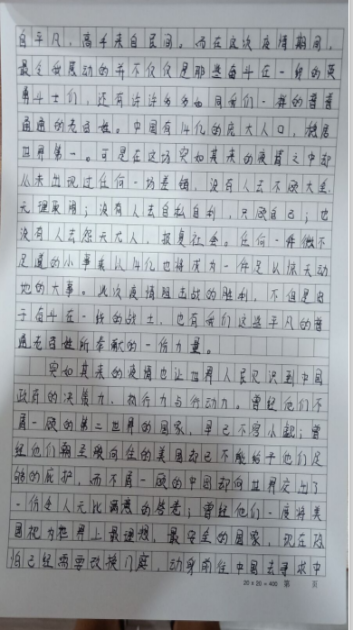 自平凡，高手来自民间。而在这次疫情期间，
最令我感动的并不仅仅是那些奋斗在一线的英
勇斗士们，还有许许多多如同我们一样的普普
通通的老百姓。中国有14亿的庞大人口，稳居
世界第一。可是在这场突如其来的疫情之中却
从未出现过任何一场差错，没有人去不顾大是
元理取闹；没有人去自私自利，只顾自己；也
没有人去怨天尤人，报复社会。任何一件微不
足道的小事乘以14亿也将成为一件足以惊天动
地的大事。此次疫情阻击战的胜利，不但是由
于奋斗在一线的战士，也有我们这些平凡的普
通老百姓所奉献的一份力量。
突如其来的疫情也让世界人民见识到中国
政府的决策力，执行力与行动力。曾经他们不
屑一顾的第三世界的国家，早已不容小觑；曾
经他们翘首以向往的美国却已不能给予他们足
够的庇护，而不屑一顾的中国却向世界交出了
一份令人无比满意的答卷；曾经他们一度将美
国视为世界上最理想，最安全的国家，现在恐
怕已经需要改换门庭，动身前往中国去寻求中
20×20=400 第 页